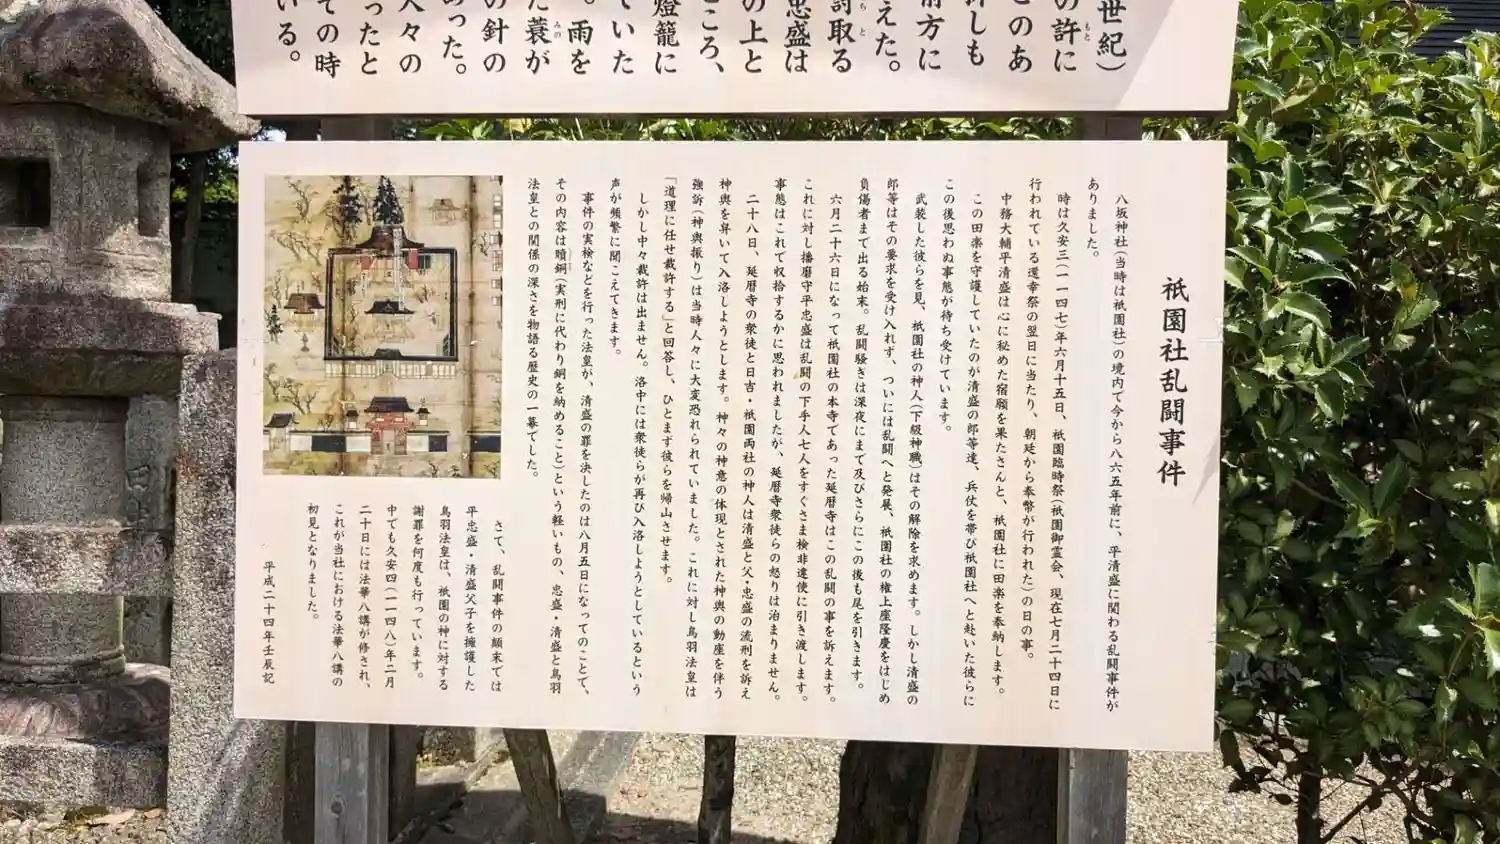 世紀）
の許に
もと
どのあ
押しも
前方に
えた。
討取る
うちと
忠盛は
の上と
ころ、
燈籠に
ていた
。雨を
た蓑が
みの
の針の
あった。
人々の
ったと
その時
いる。
祇園社乱闘事件
八坂神社（当時は祇園社）の境内で今から八六五年前に、平清盛に関わる乱闘事件が
ありました。
時は久安三（一一四七）年六月十五日、祇園臨時祭（祇園御霊会、現在七月二十四日に
行われている還幸祭の翌日に当たり、朝廷から奉幣が行われた）の日の事。
中務大輔平清盛は心に秘めた宿願を果たさんと、祇園社に田楽を奉納します。
この田楽を守護していたのが清盛の郎等達、兵仗を帯び祇園社へと赴いた彼らに
この後思わぬ事態が待ち受けています。
武装した彼らを見、祇園社の神人（下級神職）はその解除を求めます。しかし清盛の
郎等はその要求を受け入れず、ついには乱闘へと発展、祇園社の権上座隆慶をはじめ
負傷者まで出る始末。乱闘騒ぎは深夜にまで及びさらにこの後も尾を引きます。
六月二十六日になって祇園社の本寺であった延暦寺はこの乱闘の事を訴えます。
これに対し播磨守平忠盛は乱闘の下手人七人をすぐさま検非違使に引き渡します。
事態はこれで収拾するかに思われましたが、延暦寺衆徒らの怒りは治まりません。
二十八日、延暦寺の衆徒と日吉・祇園両社の神人は清盛と父・忠盛の流刑を訴え
神輿を舁いて入洛しようとします。神々の神意の体現とされた神輿の動座を伴う
強訴（神輿振り）は当時人々に大変恐れられていました。これに対し鳥羽法皇は
「道理に任せ裁許する」と回答し、ひとまず彼らを帰山させます。
しかし中々裁許は出ません。洛中には衆徒らが再び入洛しようとしているという
声が頻繁に聞こえてきます。
事件の実検などを行った法皇が、清盛の罪を決したのは八月五日になってのことで、
その内容は贖銅（実刑に代わり銅を納めること）という軽いもの、忠盛・清盛と鳥羽
法皇との関係の深さを物語る歴史の一幕でした。
さて、乱闘事件の顛末では
平忠盛・清盛父子を擁護した
鳥羽法皇は、祇園の神に対する
謝罪を何度も行っています。
中でも久安四（一一四八）年二月
二十日には法華八講が修され、
これが当社における法華八講の
初見となりました。
平成二十四年壬辰記